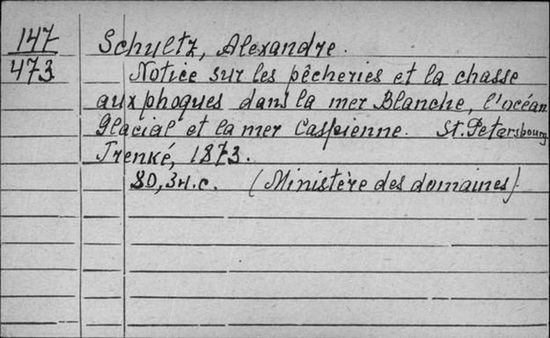 147
473
Schultz, Alexandre.
Notice sur les pêcheries et la chasse
aux phoques dans la mer Blanche, l'océan
Glacial et la mer Caspienne. St. Petersbourg
Trenké, 1873.
80, 34.c. (Ministère des domaines)